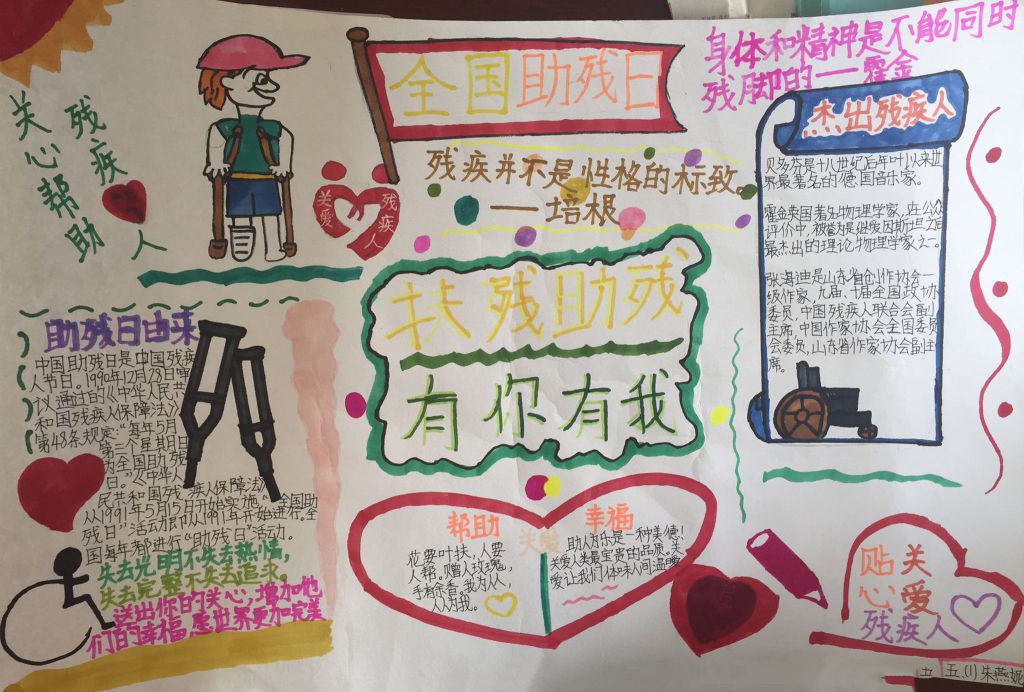 全国助残日
身体和精神是不能同时
残脚的——霍金
关心帮助
残疾人
关爱
残疾人
残疾并不是性格的标致。
——培根
杰出残疾人
贝多芬是十八世纪后年叶以来世
界最著名的德国音乐家。
霍金英国著名物理学家,在公众
评价中,被誉为是继爱因斯坦之后
最杰出的理论物理学家之一。
张海迪是山东省创作协会一
级作家,九届、十届全国政协
委员,中国残疾人联合会副
主席,中国作家协会全国委员
会委员,山东省作家协会副主
席。
扶残助残
有你有我
助残日由来
中国助残日是中国残疾
人节日。1990年12月28日审
议通过的《中华人民共
和国残疾人保障法》
第48条规定:"每年5月
第三个星期日
为全国助残
日。《中华人
民共和国残疾人保障法》
从1991年5月15日开始实施。"全国助
残日"活动即从1991年开始进行。全
国每年都进行"助残日"活动。
失去光明不失去热情,
失去完整不失去追求。
送出你的关心,增加他
们的幸福,愿世界更加完美
帮助
花要叶扶,人要
人帮。赠人玫瑰,
手有余香。我为人人,
人人为我。
关爱
幸福
助人为乐是一种美德!
关爱人类最宝贵的品质。关
爱让我们体味人间温暖
贴心
关爱
残疾人
五、(1)朱燕妮